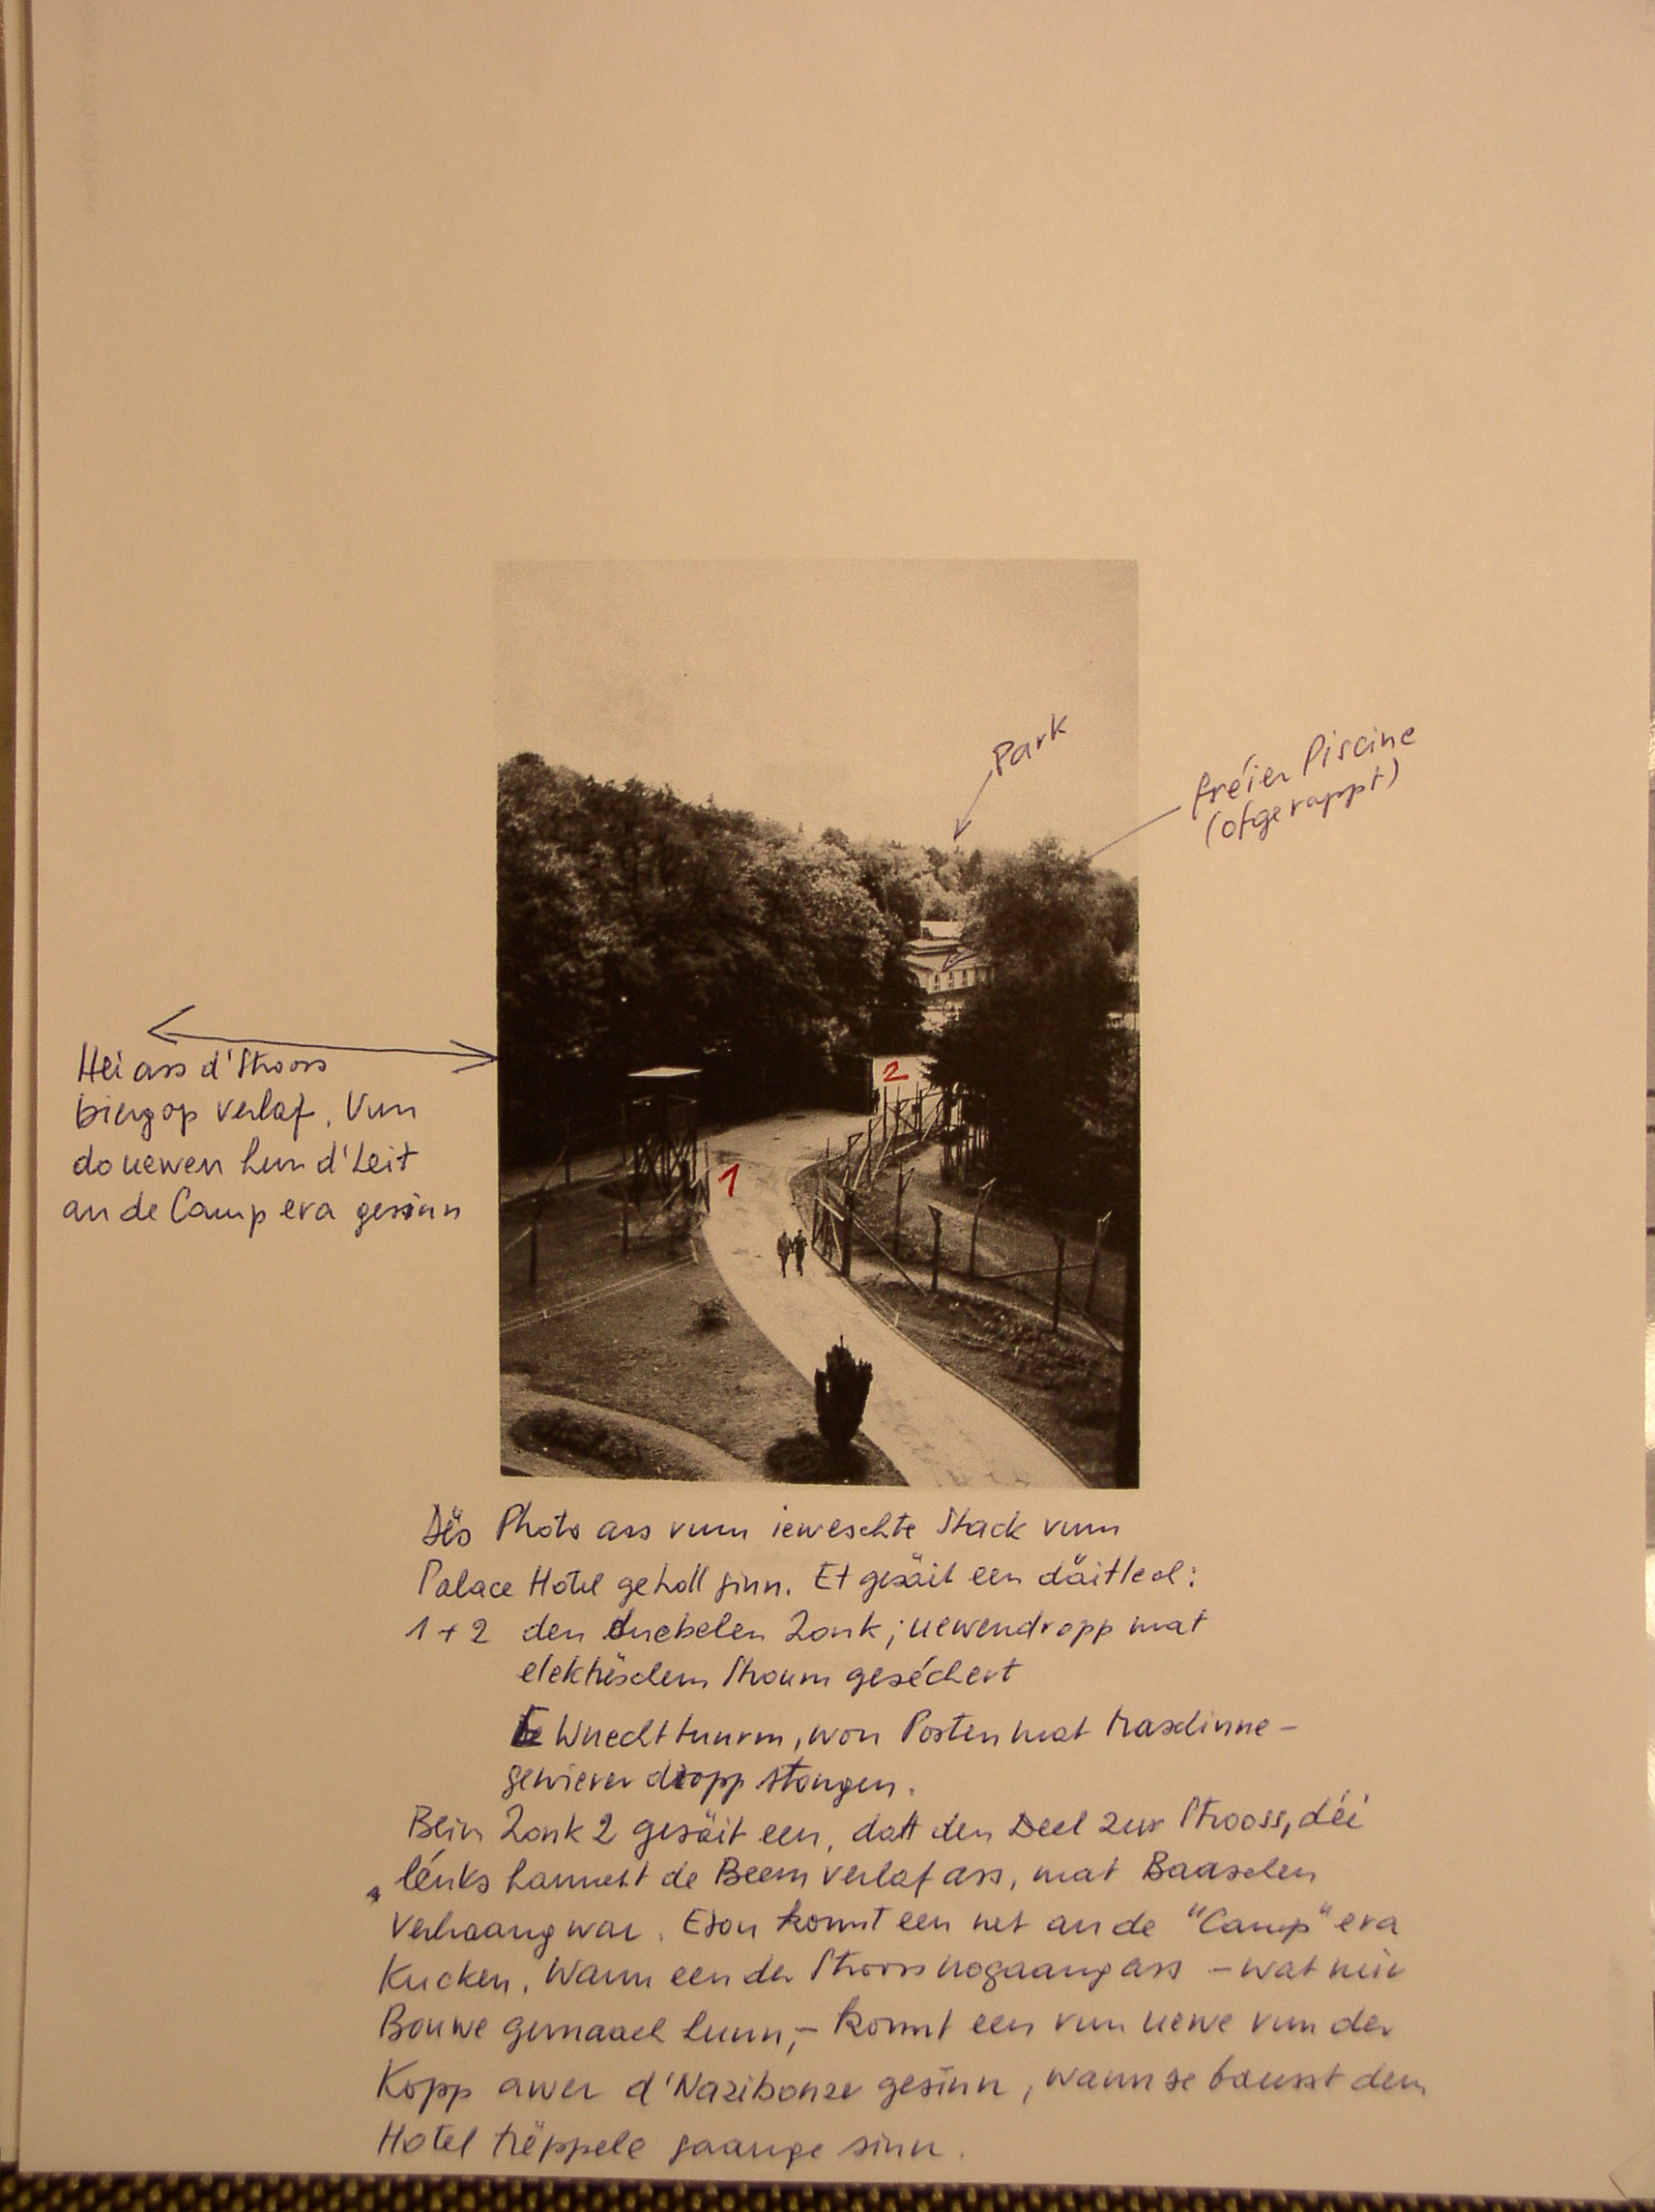 Park
fréier Piscine
(ofgerappt)
Hei ass d'Strooss
biergop verlaf. Vun
do uewen hun d'Leit
an de Camp era gesinn
2
1
Dës Photo ass vum ieweschte Stack vum
Palace Hotel geholl ginn. Et gesäit een däitlech:
1 + 2 den duebelen Zonk; uewendropp mat
elektrëschem Stroum geséchert
De Wuechttuurm, wou Posten mat Maschinne-
gewierer dropp stongen.
Beim Zonk 2 gesäit een, datt den Deel zur Strooss, déi
lénks hannert de Beem verlaf ass, mat Baaschen
verhaang war. Esou konnt een net an de "Camp" era
kucken. Wann een der Strooss nogaang ass - wat mir
Bouwe gemaach hunn, - konnt een vun uewe vun der
Kopp awer d'Nazibonze gesinn, wann se bausst dem
Hotel trëppele gaange sinn.